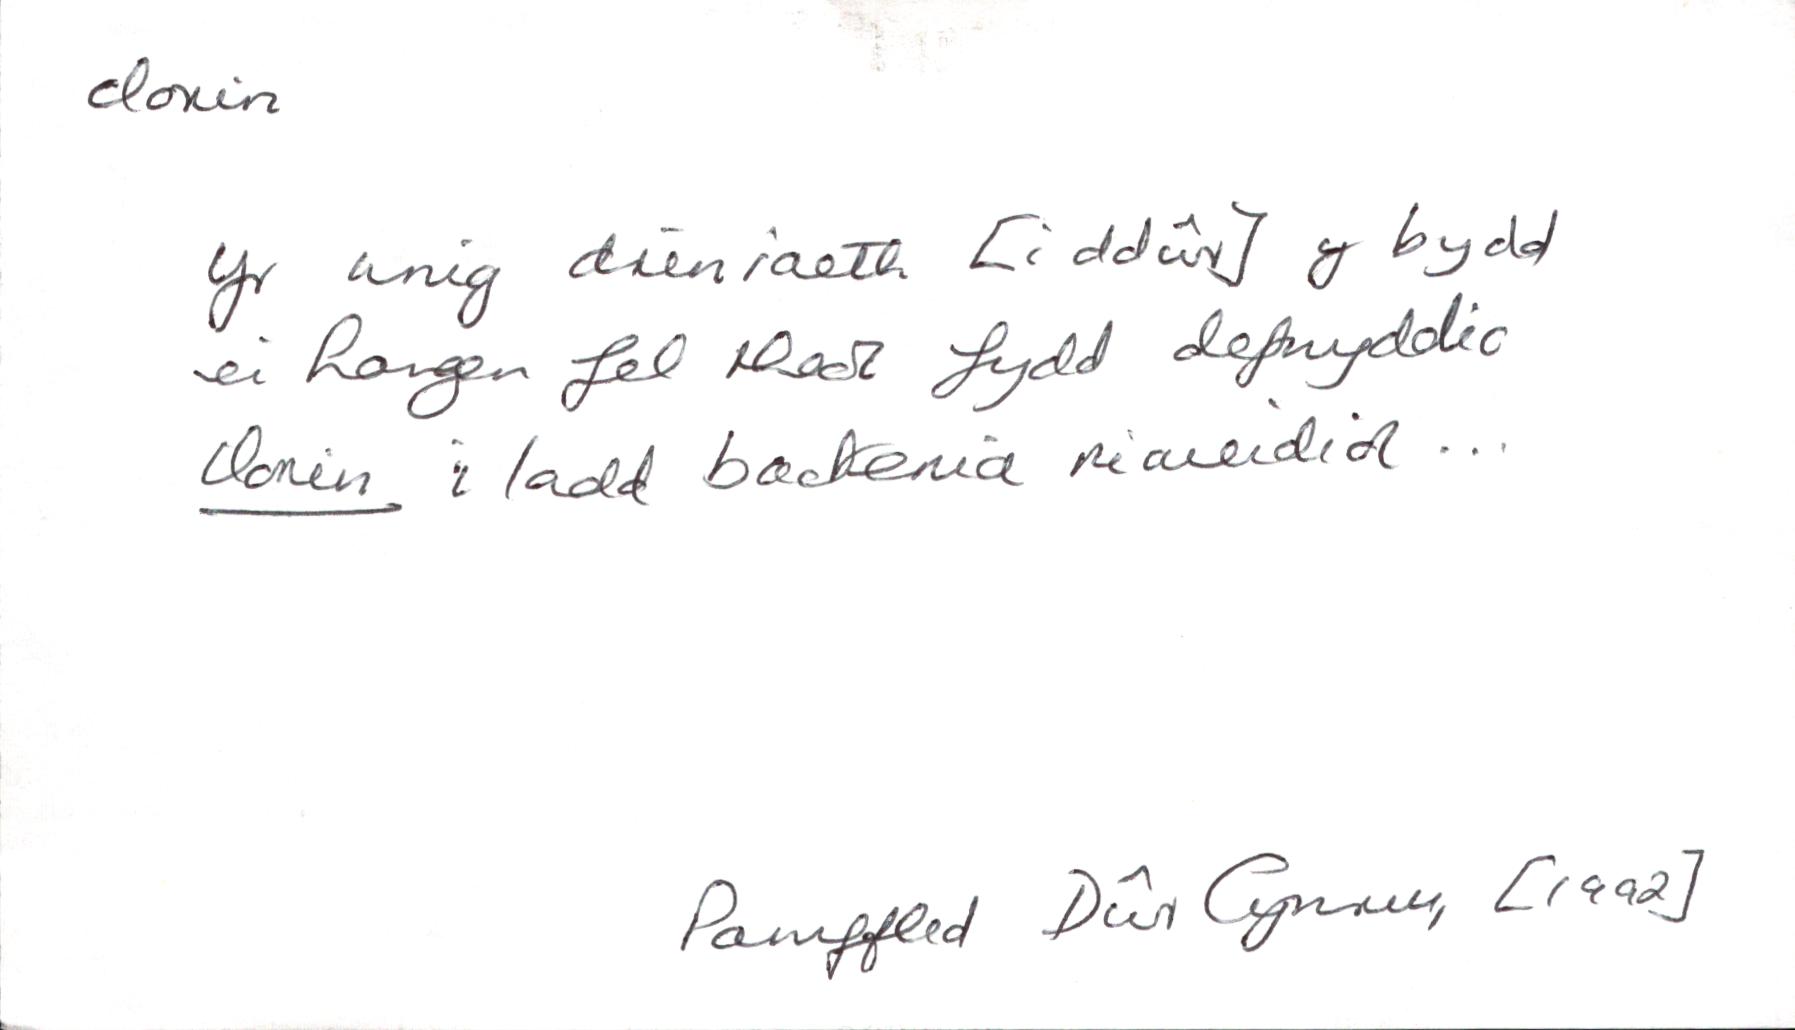 clorin
Yr unig driniaeth [i ddŵr] y bydd
ei hangen fel rheol fydd defnyddio
clorin i ladd bacteria niweidiol ...
Pamffled Dŵr Cymru, [1992]